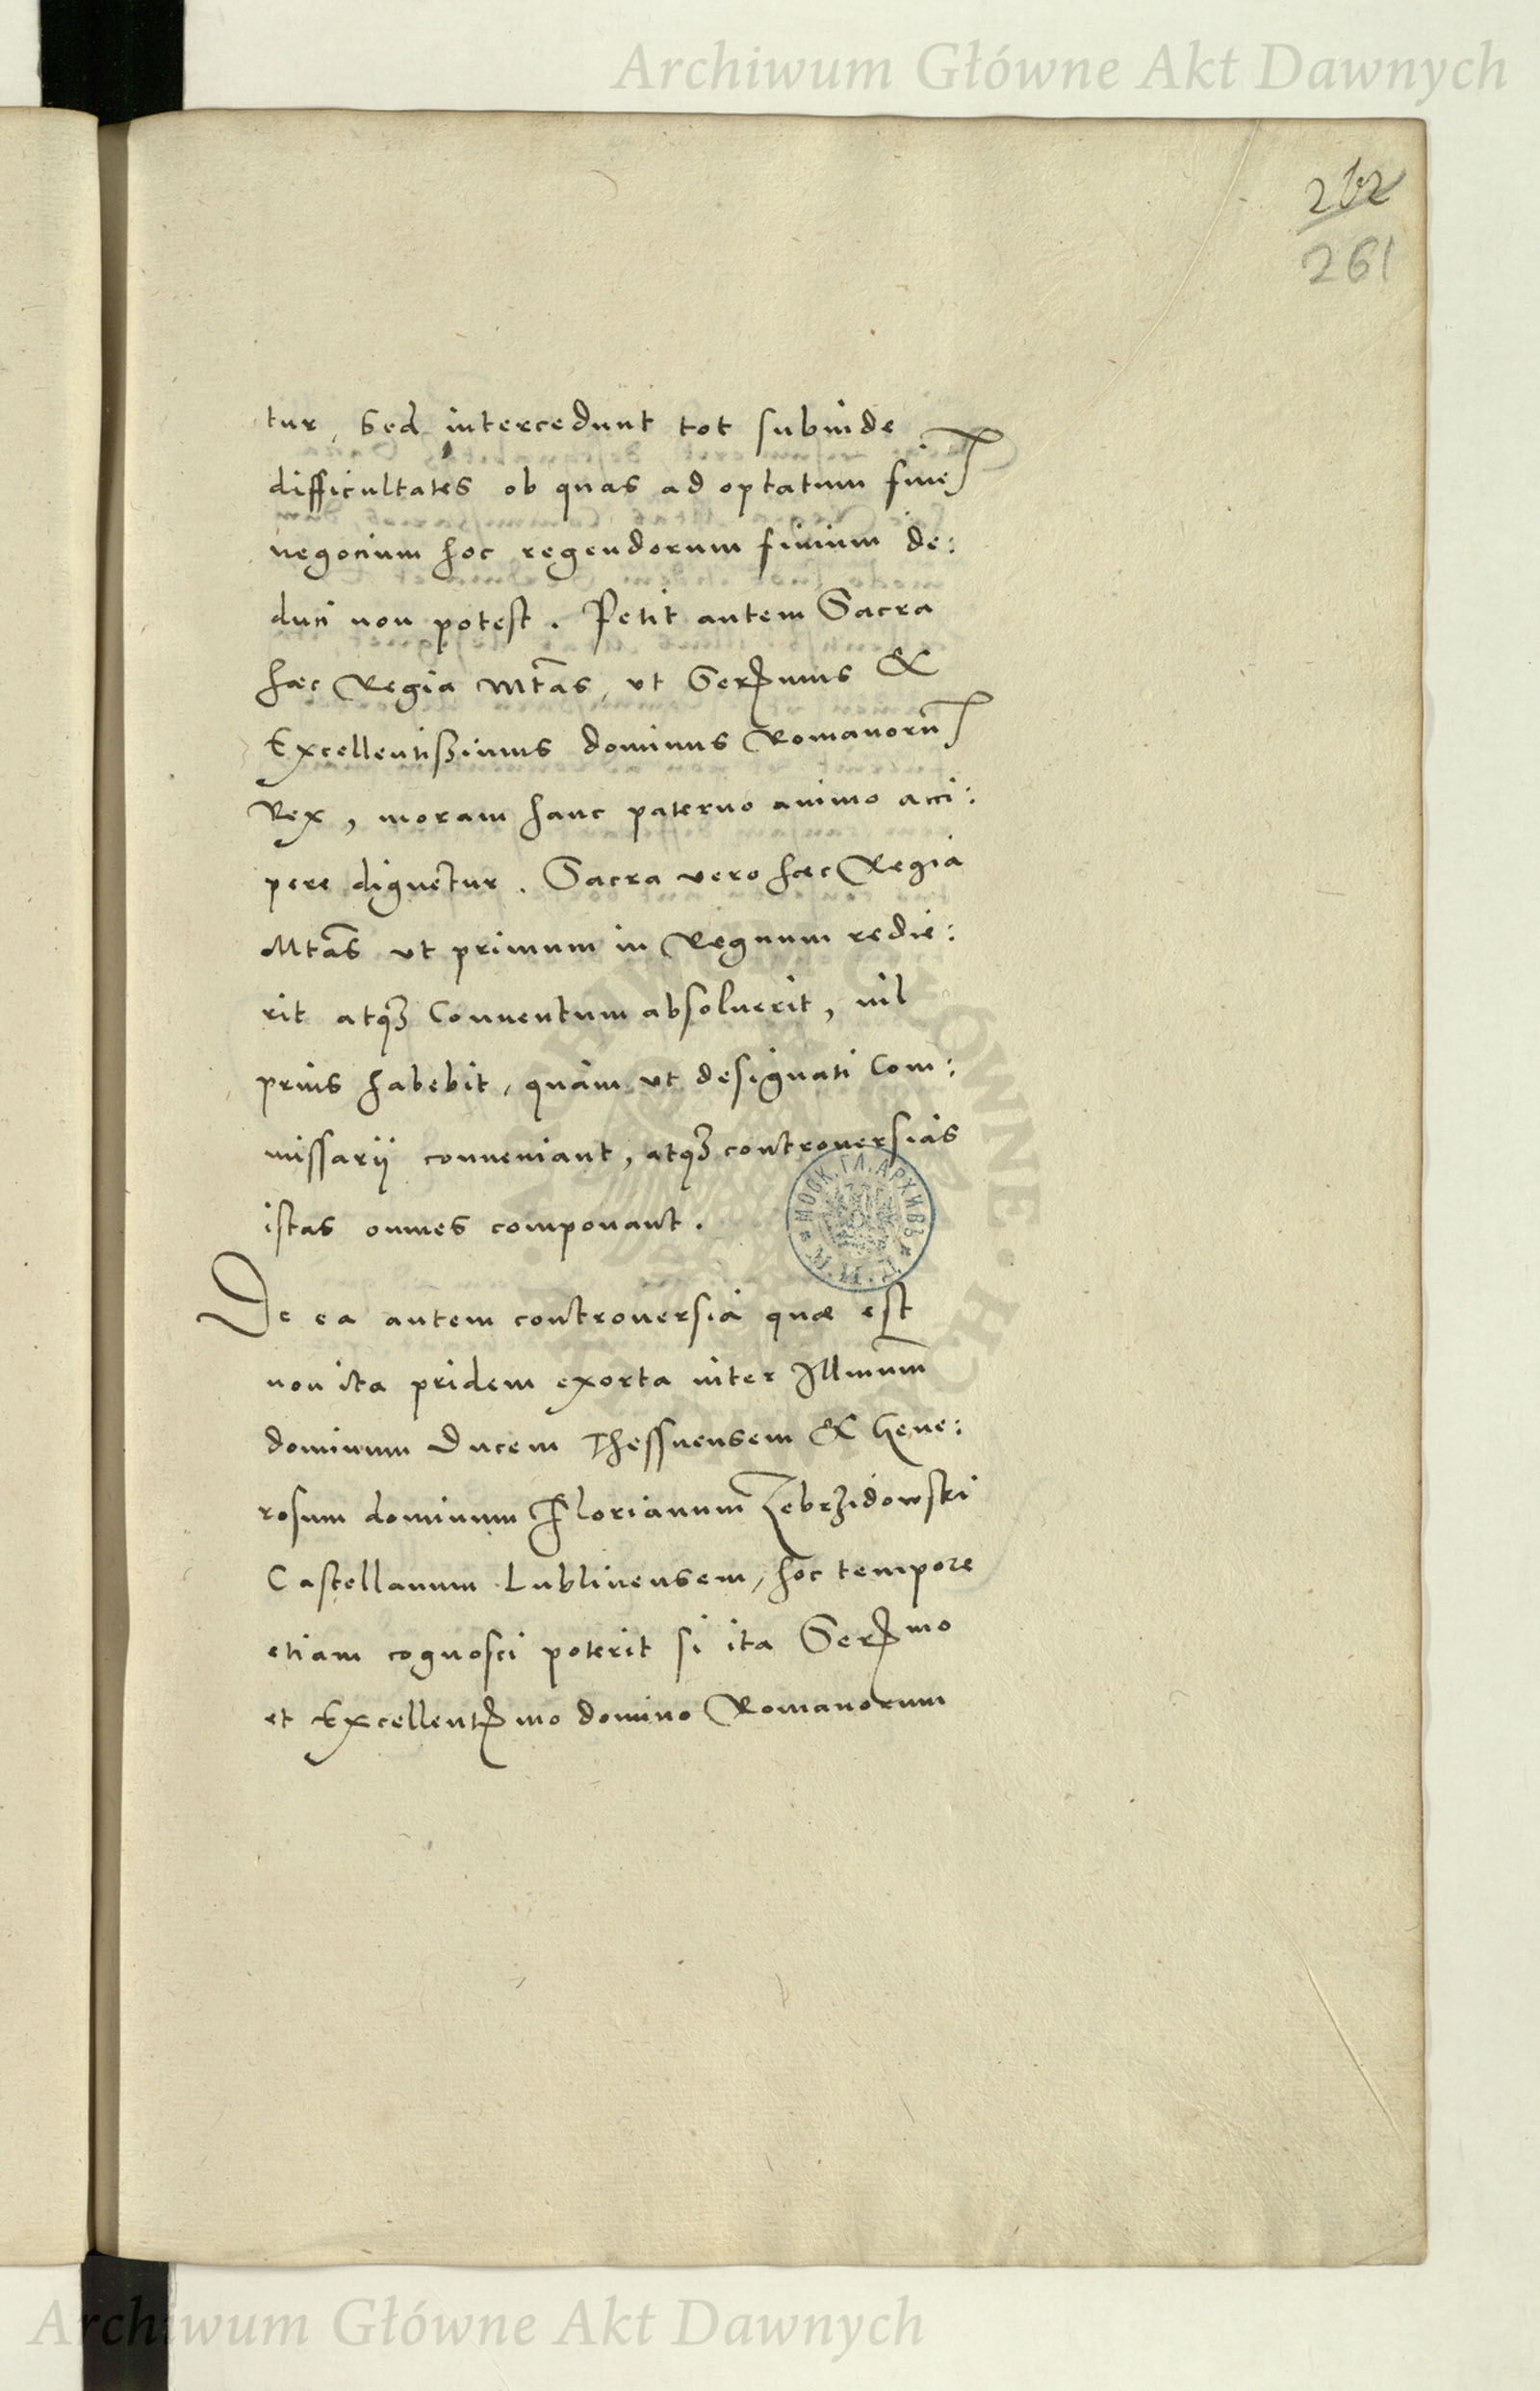 Archiwum Główne Akt Dawnych
262
261
tur, Sed intercedunt tot subinde
difficultates ob quas ad optatum fine͂
negocium hoc regendorum finium de:
duci non potest. Petit autem Sacra
hæc Regia Mtas, vt Serenmus &
Excellentißimus dominus Romanorũ
Rex, moram hanc paterno animo acci:
pere dignetur. Sacra vero hæc Regia
Mtas vt primum in Regnum redie:
rit atqꝫ Conuentum absoluerit, nil
prius habebit, quàm vt designati Com:
missarij conueniant, atqꝫ controuersias
istas omnes componant.
De ea autem controuersia quæ est
non ita pridem exorta inter Illmum
dominum Ducem Thessnensem & Gene:
rosum dominum Florianum Zebrzidowski
Castellanum Lublinensem, hoc tempore
etiam cognosci poterit si ita Serenmo
et Excellentmo domino Romanorum
МОСК. ГЛ. АРХИВЪ
Archiwum Główne Akt Dawnych